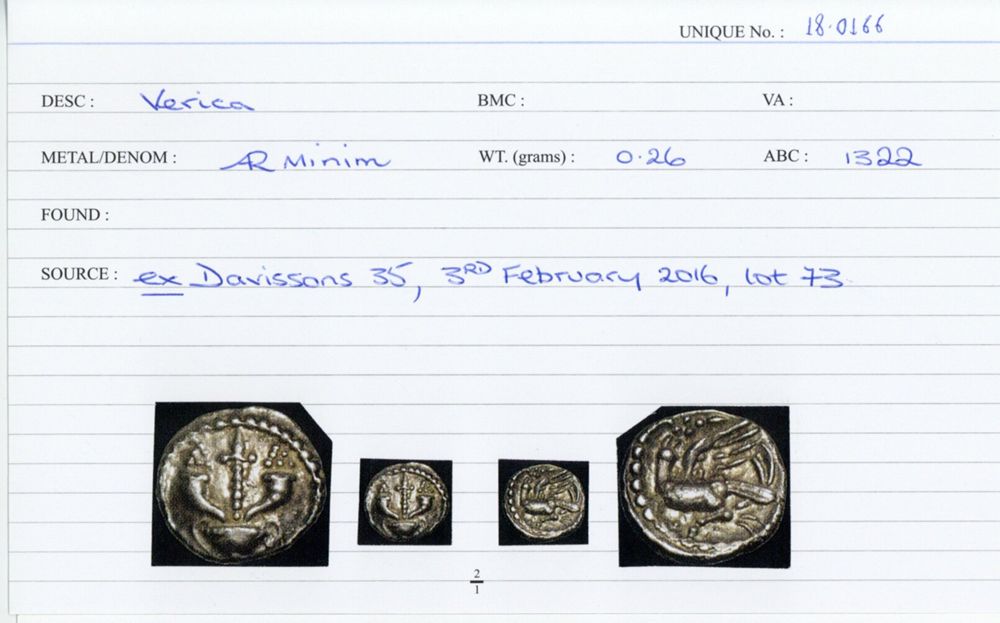 UNIQUE No. : 18·0166
DESC : Verica BMC : VA :
METAL/DENOM : AR Minim WT. (grams) : 0·26 ABC : 1322
FOUND :
SOURCE : ex Davissons 35, 3RD February 2016, lot 73.
2
1